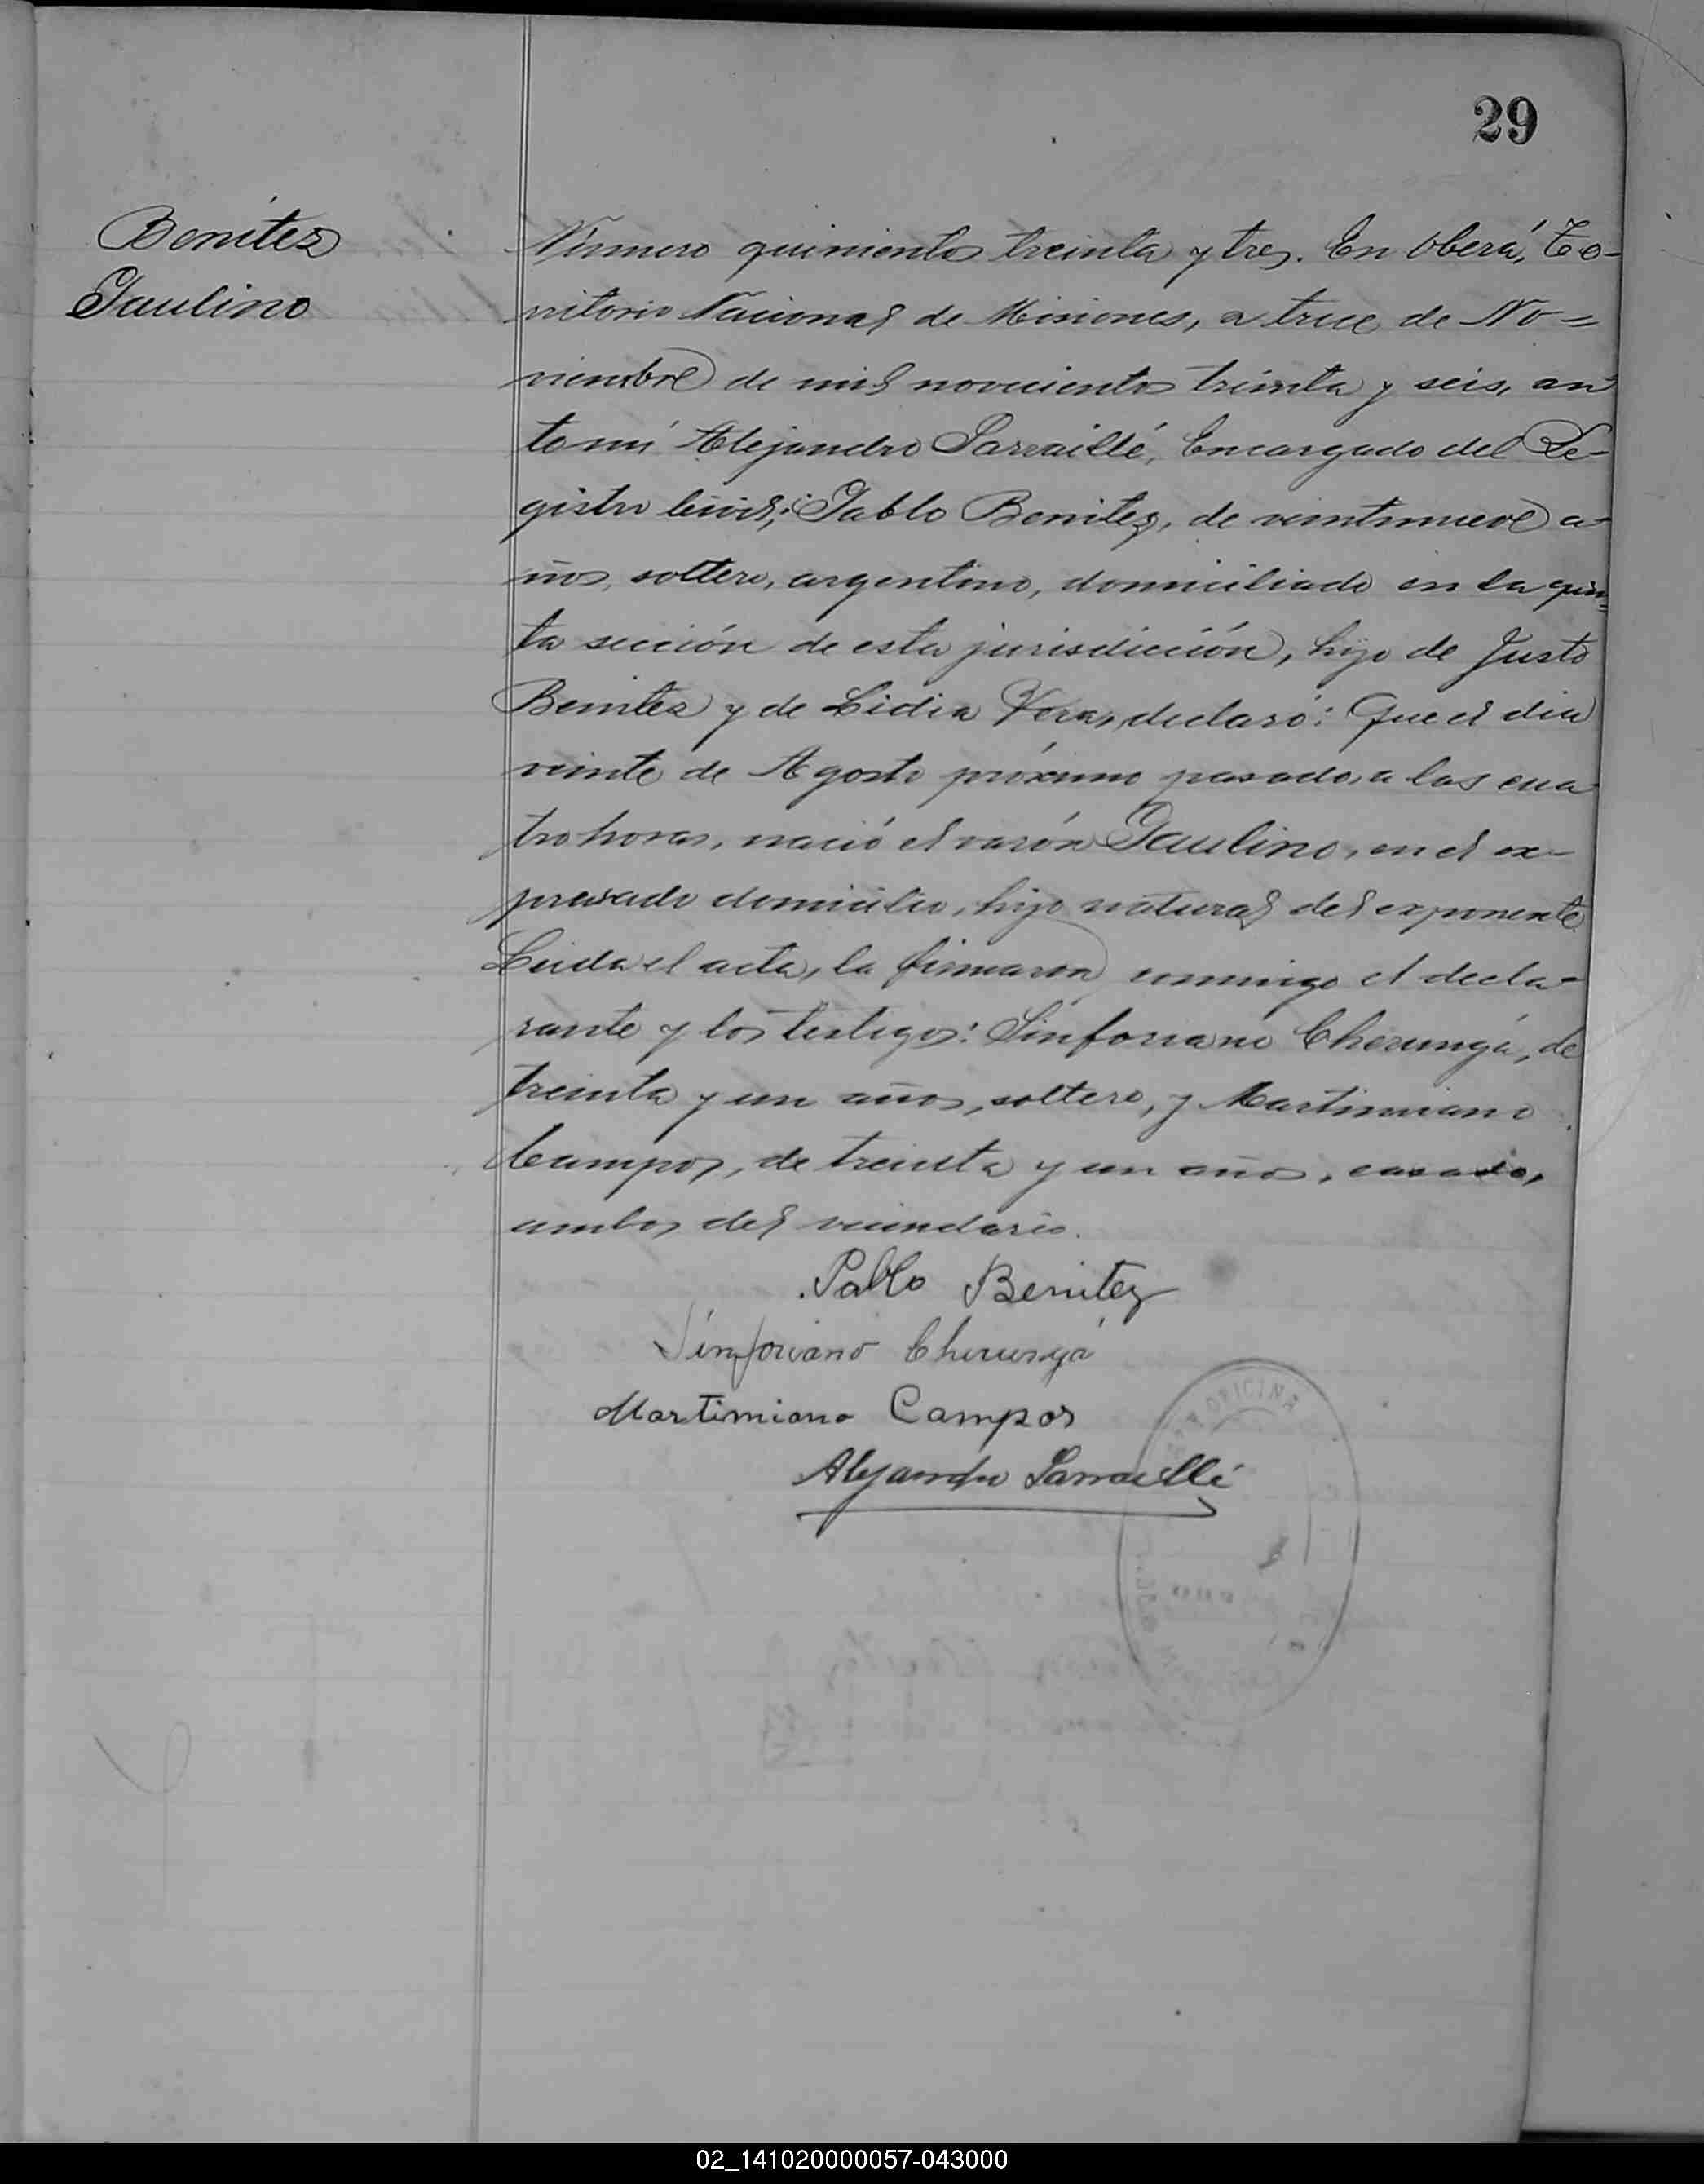 29
Benítez
Paulino
Número quinientos treinta y tres. En Oberá, Te-
rritorio Nacional de Misiones, a trece de No=
viembre de mil novecientos treinta y seis, an
te mí Alejandro Sarraillé, Encargado del Re-
gistro Civil; Pablo Benitez, de veintinueve a-
ños, soltero, argentino, domiciliado en la quin=
ta sección de esta jurisdicción, hijo de Justo
Benitez y de Lidia Vera, declaró: Que el día
veinte de Agosto próximo pasado, a las cua
tro horas, nació el varón Paulino, en el ex-
presado domicilio, hijo natural del exponente
Leida el acta, la firmaron conmigo el decla-
rante y los testigos: Sinforiano Cherungá, de
treinta y un años, soltero, y Martimiano
Campos, de treinta y un años, casado,
ambos del vecindario.
Pablo Benitez
Sinforiano Cherungá
Martimiano Campos
Alejandro Sarraillé
OFICINA
02_141020000057-043000